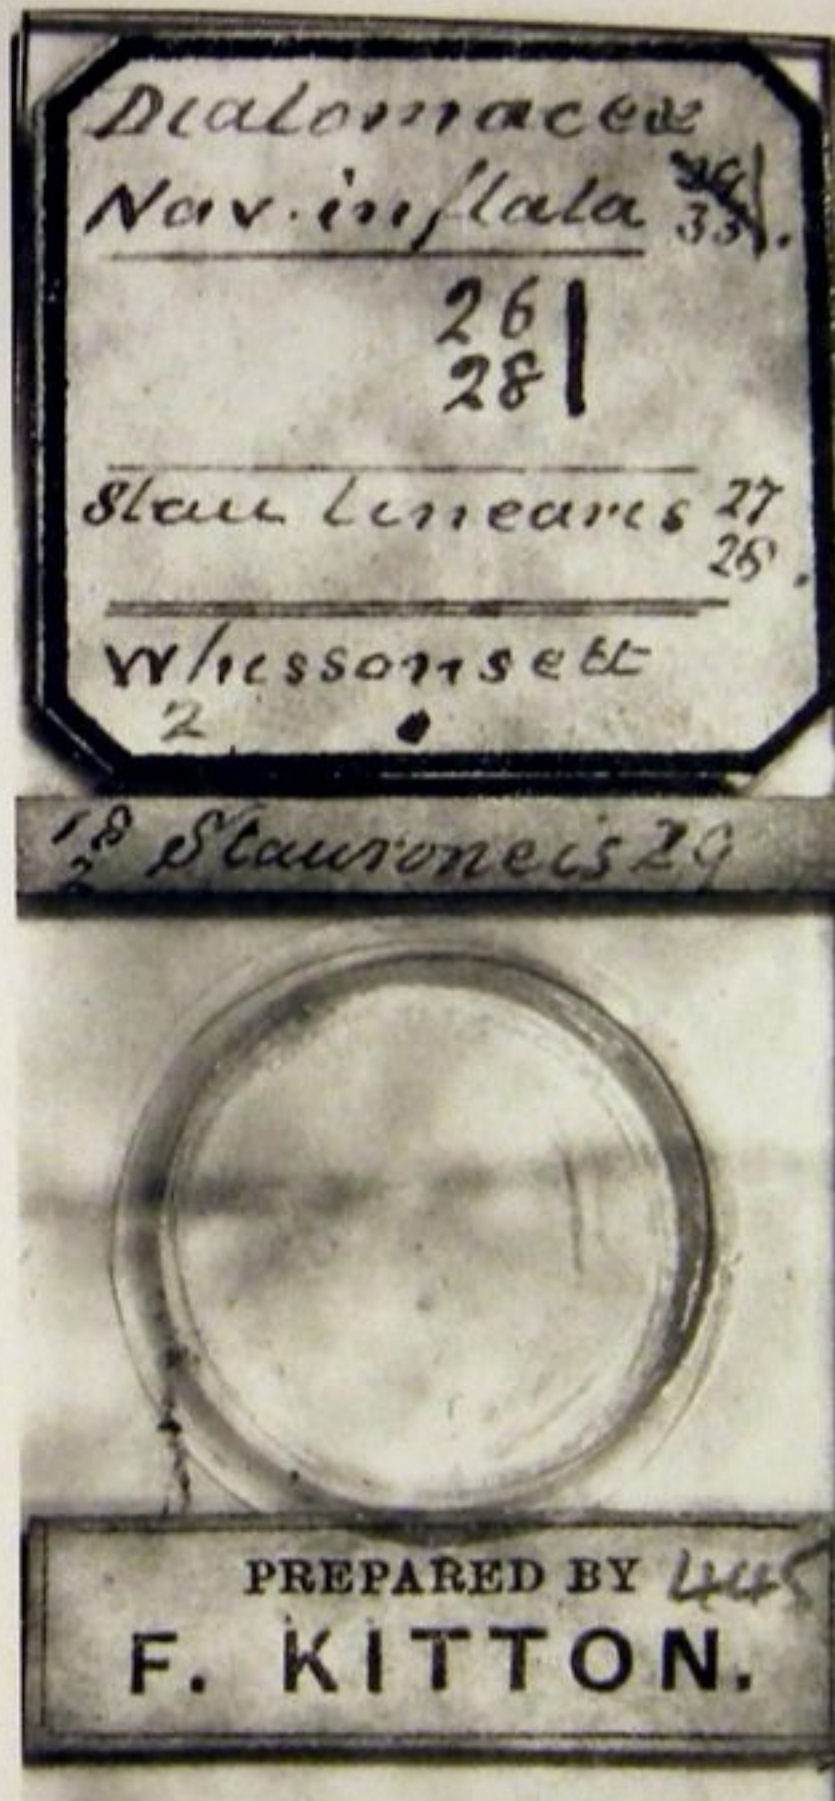 Diatomaceæ
Nav. inflata 33
26
28
Stau linearis 27
28.
Whissonsett
2
18 Stauroneis 29
2
PREPARED BY 445
F. KITTON.